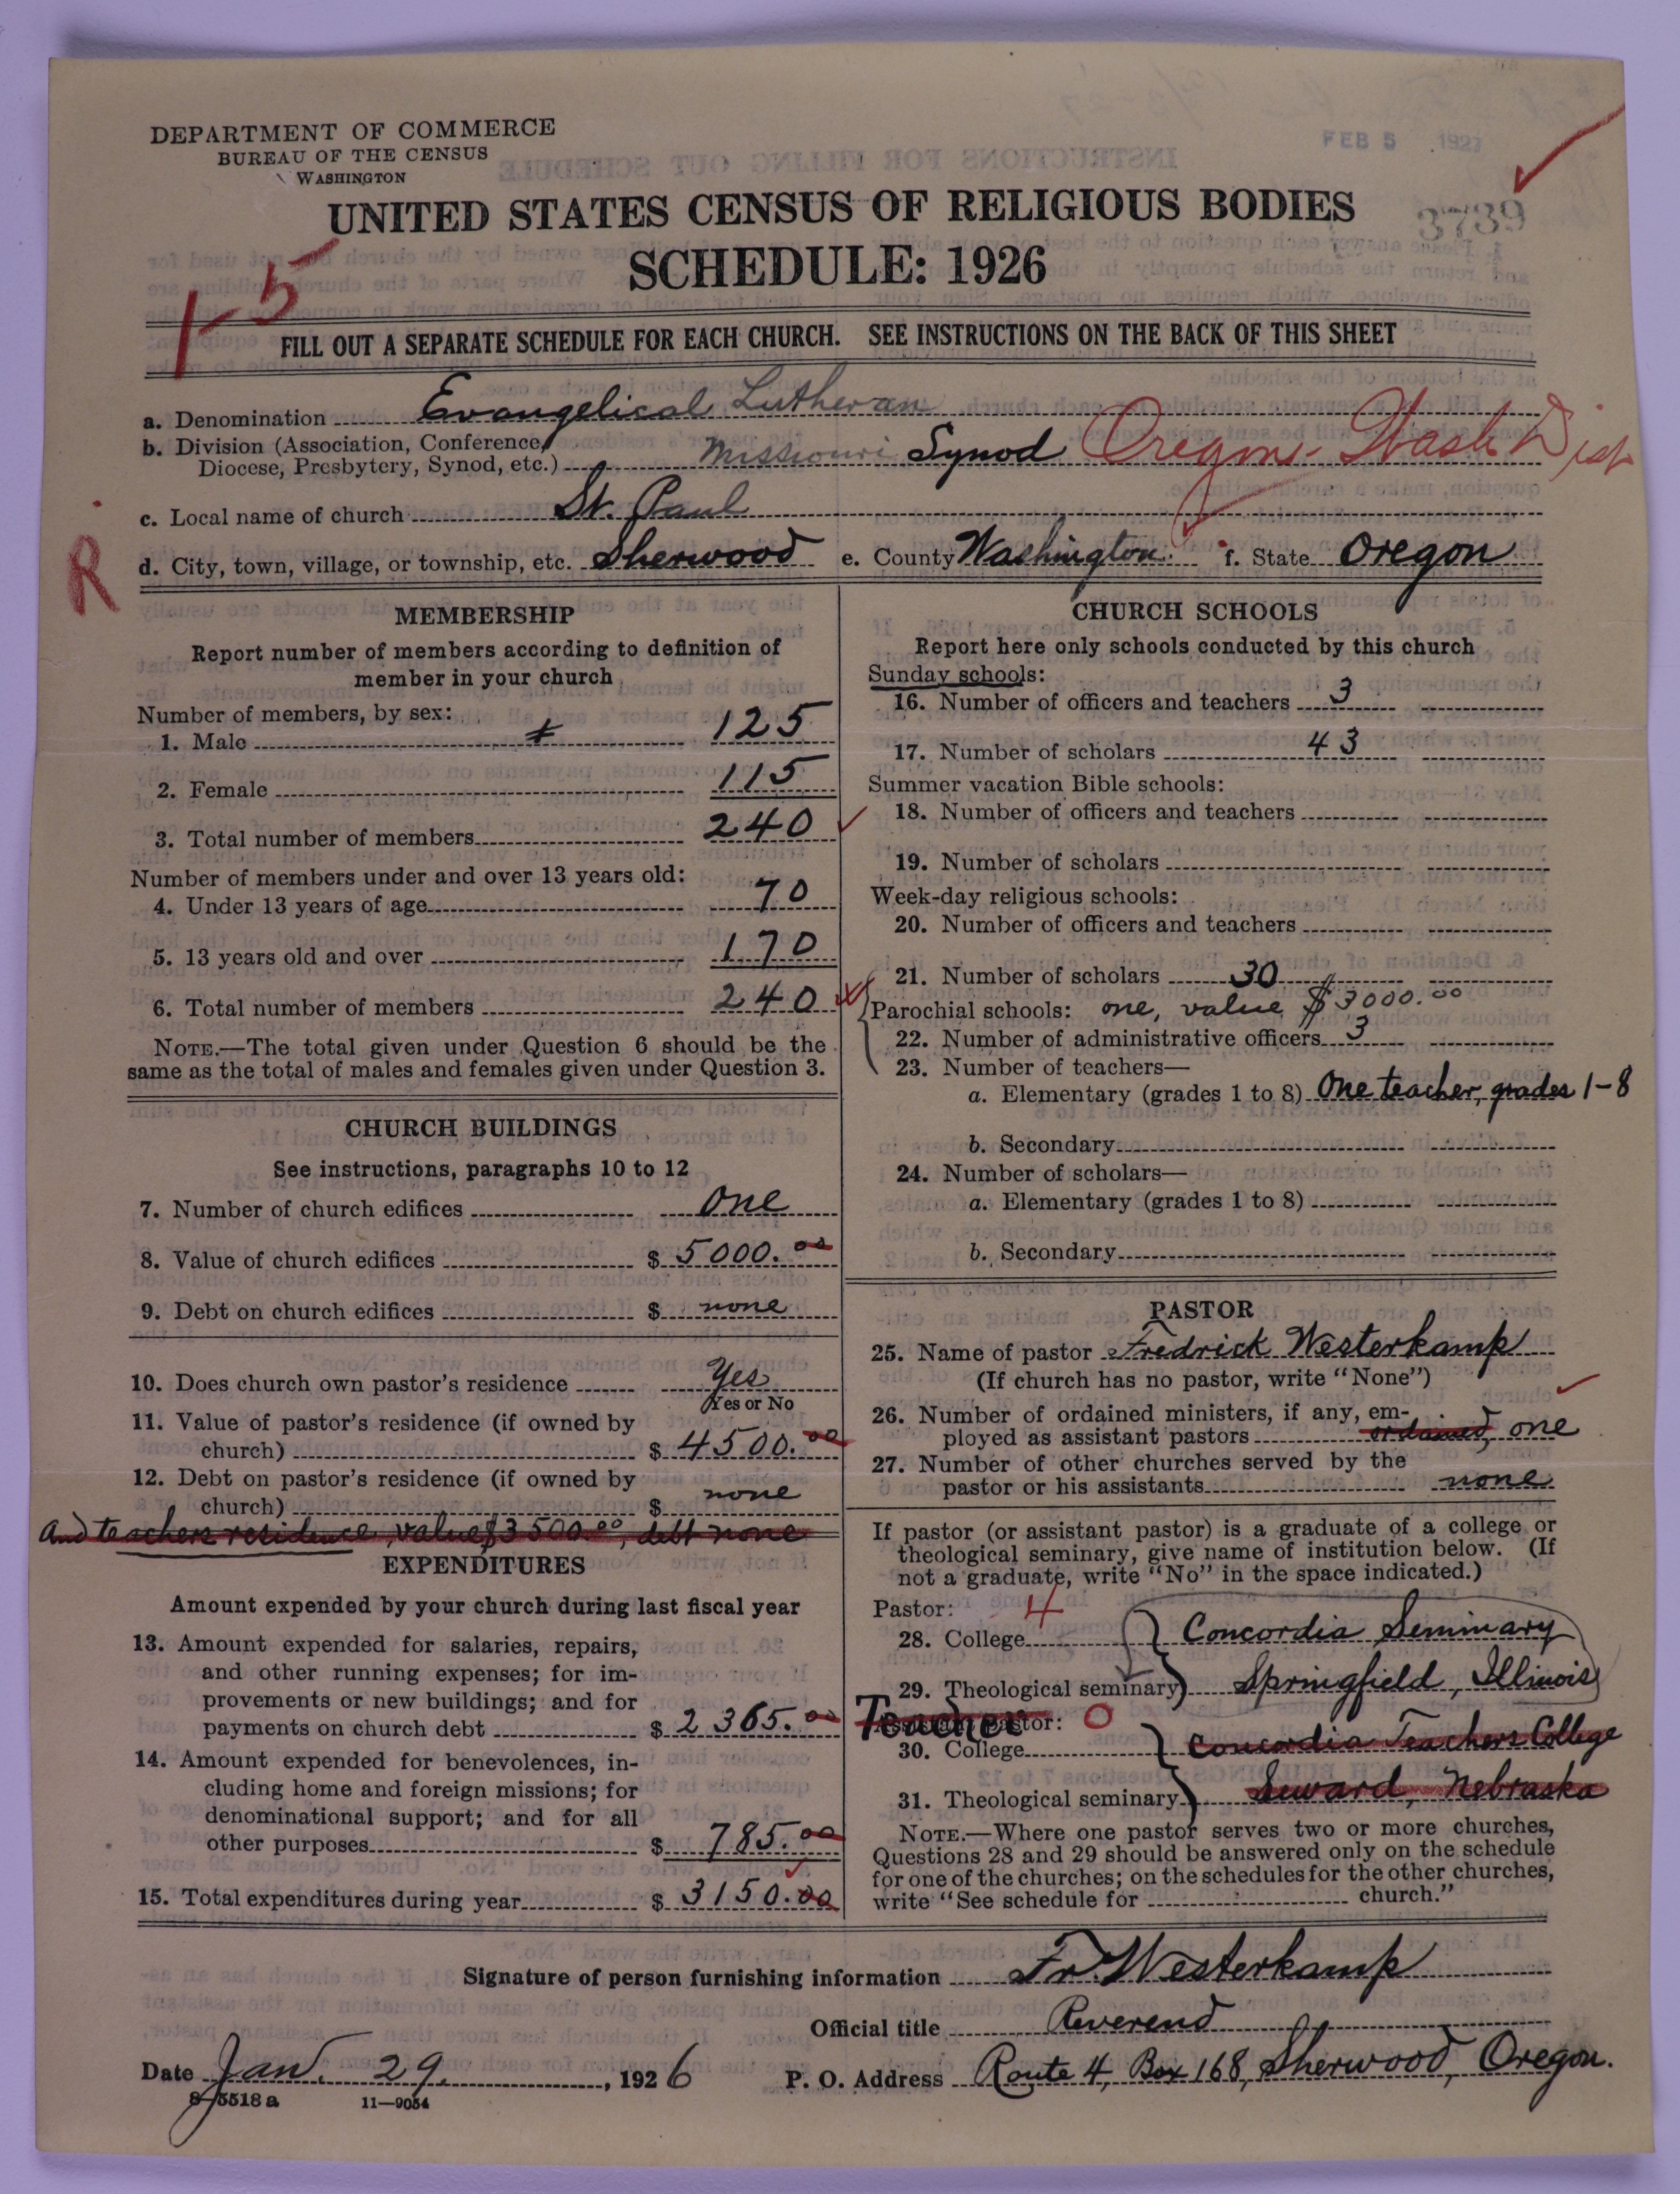 DEPARTMENT OF COMMERCE
BUREAU OF THE CENSUS
WASHINGTON
FEB 5 1927
3739
UNITED STATES CENSUS OF RELIGIOUS BODIES
SCHEDULE: 1926
1-5
FILL OUT A SEPARATE SCHEDULE FOR EACH CHURCH. SEE INSTRUCTIONS ON THE BACK OF THIS SHEET
a. Denomination Evangelical Lutheran
b. Division (Association, Conference,
Diocese, Presbytery, Synod, etc.) Missouri Synod Oregon - Wash Dist
c. Local name of church St. Paul
R
d. City, town, village, or township, etc. Sherwood e. County Washington f. State Oregon
MEMBERSHIP
Report number of members according to definition of
member in your church
Number of members, by sex:
1. Male 125
2. Female 115
3. Total number of members 240
Number of members under and over 13 years old:
4. Under 13 years of age 70
5. 13 years old and over 170
6. Total number of members 240
NOTE.—The total given under Question 6 should be the
same as the total of males and females given under Question 3.
CHURCH BUILDINGS
See instructions, paragraphs 10 to 12
7. Number of church edifices One
8. Value of church edifices $ 5000.00
9. Debt on church edifices $ none
10. Does church own pastor's residence Yes
Yes or No
11. Value of pastor's residence (if owned by
church) $ 4500.00
12. Debt on pastor's residence (if owned by
church) $ none
and teachers residence, value $3500.00, debt none
EXPENDITURES
Amount expended by your church during last fiscal year
13. Amount expended for salaries, repairs,
and other running expenses; for im-
provements or new buildings; and for
payments on church debt $ 2365.00
14. Amount expended for benevolences, in-
cluding home and foreign missions; for
denominational support; and for all
other purposes $ 785.00
15. Total expenditures during year $ 3150.00
CHURCH SCHOOLS
Report here only schools conducted by this church
Sunday schools:
16. Number of officers and teachers 3
17. Number of scholars 43
Summer vacation Bible schools:
18. Number of officers and teachers
19. Number of scholars
Week-day religious schools:
20. Number of officers and teachers
21. Number of scholars 30
Parochial schools: one, value $3000.00
22. Number of administrative officers 3
23. Number of teachers—
a. Elementary (grades 1 to 8) One teacher, grades 1-8
b. Secondary
24. Number of scholars—
a. Elementary (grades 1 to 8)
b. Secondary
PASTOR
25. Name of pastor Fredrick Westerkamp
(If church has no pastor, write "None")
26. Number of ordained ministers, if any, em-
ployed as assistant pastors ordained, one
27. Number of other churches served by the
pastor or his assistants none
If pastor (or assistant pastor) is a graduate of a college or
theological seminary, give name of institution below. (If
not a graduate, write "No" in the space indicated.)
Pastor: 4
28. College Concordia Seminary
29. Theological seminary Springfield, Illinois
Teacher
Assistant pastor: 0
30. College Concordia Teachers College
31. Theological seminary Seward, Nebraska
NOTE.—Where one pastor serves two or more churches,
Questions 28 and 29 should be answered only on the schedule
for one of the churches; on the schedules for the other churches,
write "See schedule for church."
Signature of person furnishing information Fr. Westerkamp
Official title Reverend
Date Jan. 29, 1926 P. O. Address Route 4, Box 168, Sherwood, Oregon.
8-5518 a 11—9054